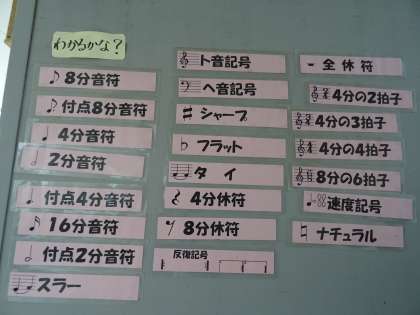 わかるかな?
8分音符
付点8分音符
4分音符
2分音符
付点4分音符
16分音符
付点2分音符
スラー
ト音記号
ヘ音記号
シャープ
フラット
タイ
4分休符
8分休符
反復記号
全休符
4分の2拍子
4分の3拍子
4分の4拍子
8分の6拍子
速度記号
ナチュラル